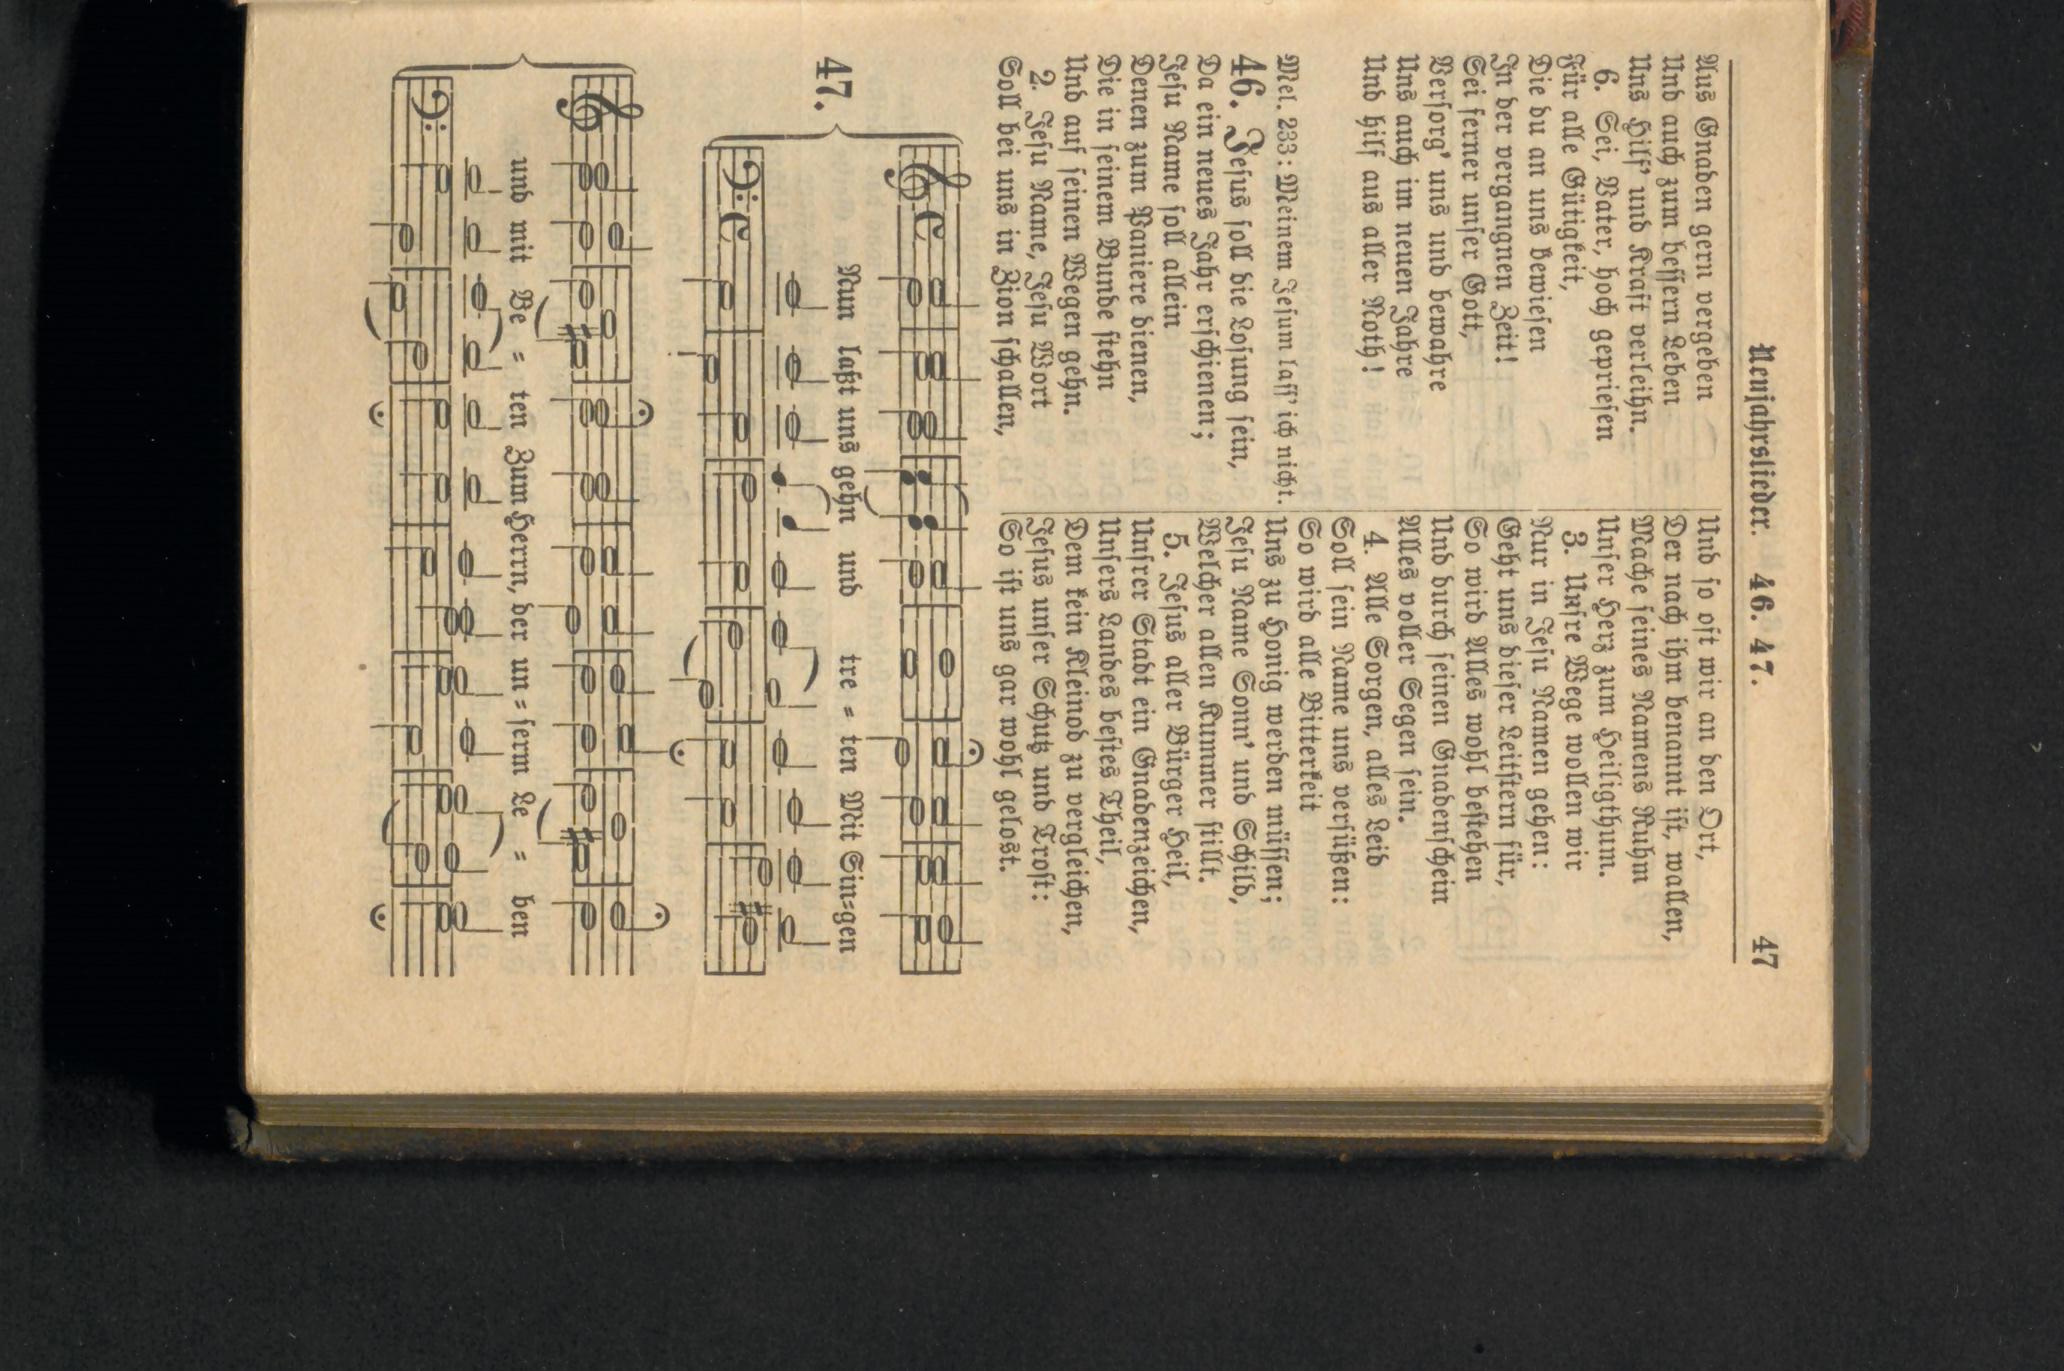 Neujahrslieder. 46. 47.
47
Aus Gnaden gern vergeben
Und auch zum bessern Leben
Uns Hilf' und Kraft verleihn.
6. Sei, Vater, hoch gepriesen
Für alle Gütigkeit,
Die du an uns bewiesen
In der vergangnen Zeit!
Sei ferner unser Gott,
Versorg' uns und bewahre
Uns auch im neuen Jahre
Und hilf aus aller Noth!
Mel. 233: Meinem Jesum lass' ich nicht.
46. Jesus soll die Losung sein,
Da ein neues Jahr erschienen;
Jesu Name soll allein
Denen zum Paniere dienen,
Die in seinem Bunde stehn
Und auf seinen Wegen gehn.
2. Jesu Name, Jesu Wort
Soll bei uns in Zion schallen,
Und so oft wir an den Ort,
Der nach ihm benannt ist, wallen,
Mache seines Namens Ruhm
Unser Herz zum Heiligthum.
3. Unsre Wege wollen wir
Nur in Jesu Namen gehen:
Geht uns dieser Leitstern für,
So wird Alles wohl bestehen
Und durch seinen Gnadenschein
Alles voller Segen sein.
4. Alle Sorgen, alles Leid
Soll sein Name uns versüßen:
So wird alle Bitterkeit
Uns zu Honig werden müssen;
Jesu Name Sonn' und Schild,
Welcher allen Kummer stillt.
5. Jesus aller Bürger Heil,
Unsrer Stadt ein Gnadenzeichen,
Unsers Landes bestes Theil,
Dem kein Kleinod zu vergleichen,
Jesus unser Schutz und Trost:
So ist uns gar wohl gelost.
47.
Nun laßt uns gehn und tre = ten Mit Sin=gen
und mit Be = ten Zum Herrn, der un = serm Le = ben